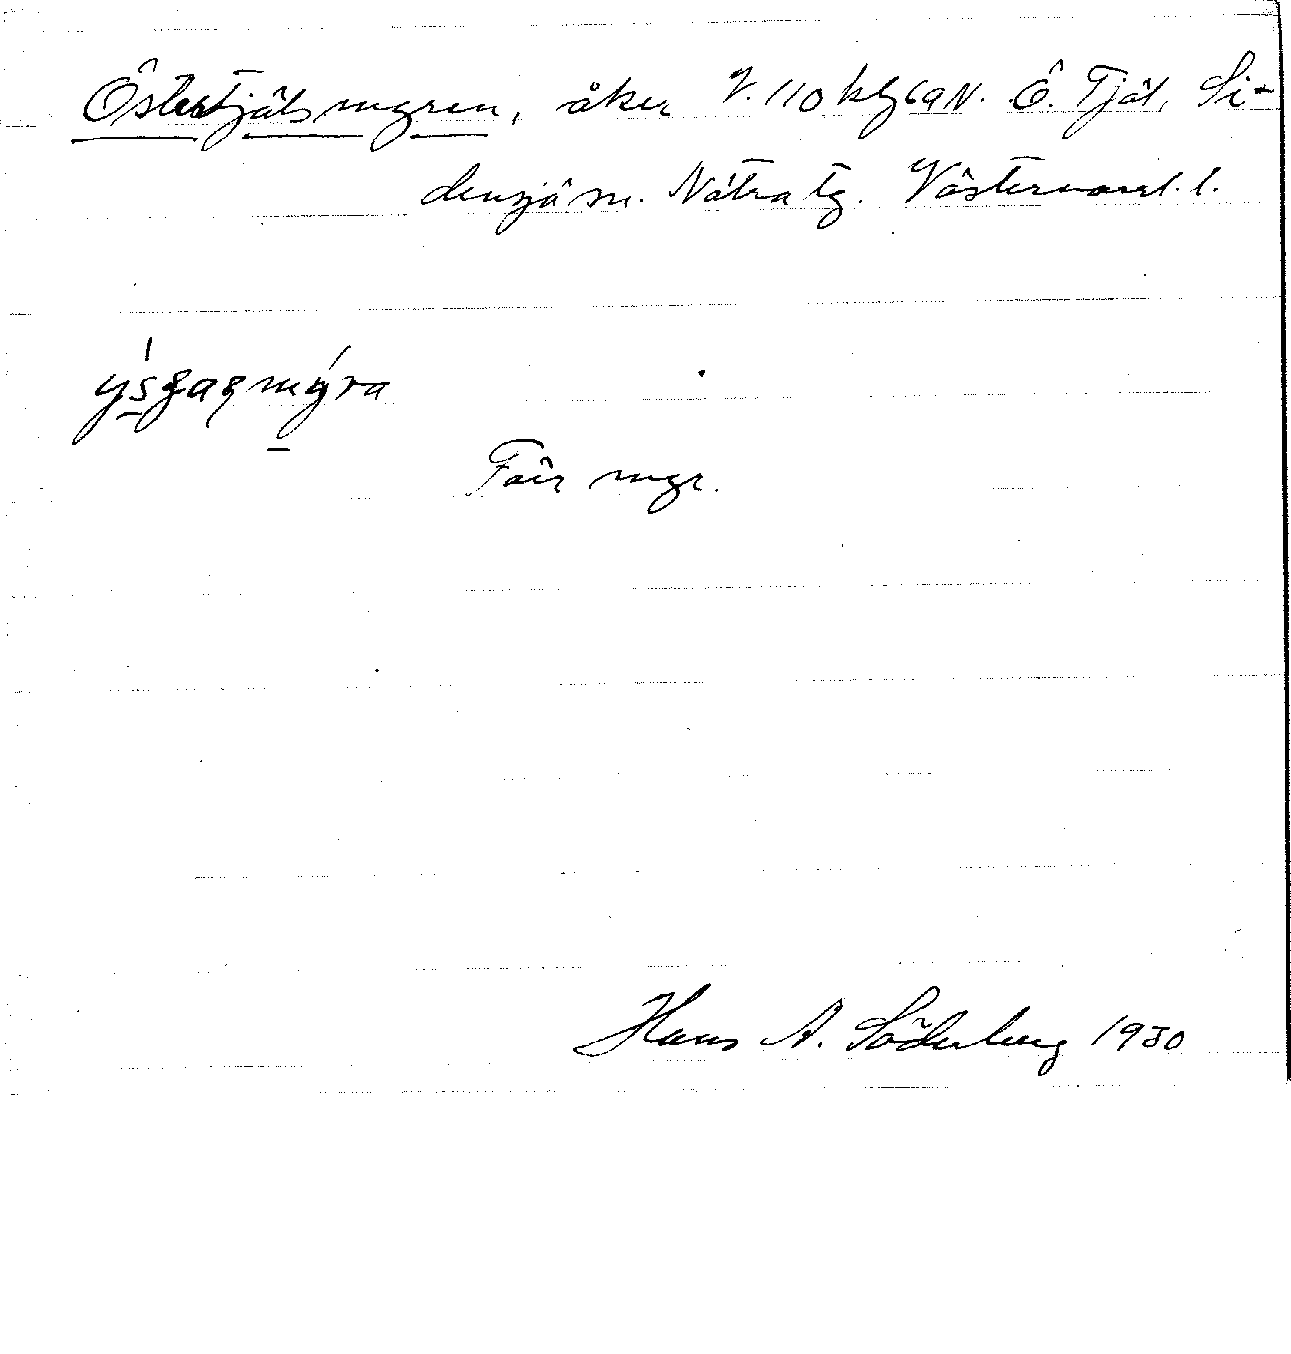 Östertjälsmyren, åker V. 110 kbg 69 N. Ö. Tjäl, Si-
densjö sn. Nätra tg. Västernorrl. l.
Förr myr.
Hans A. Söderberg 1930